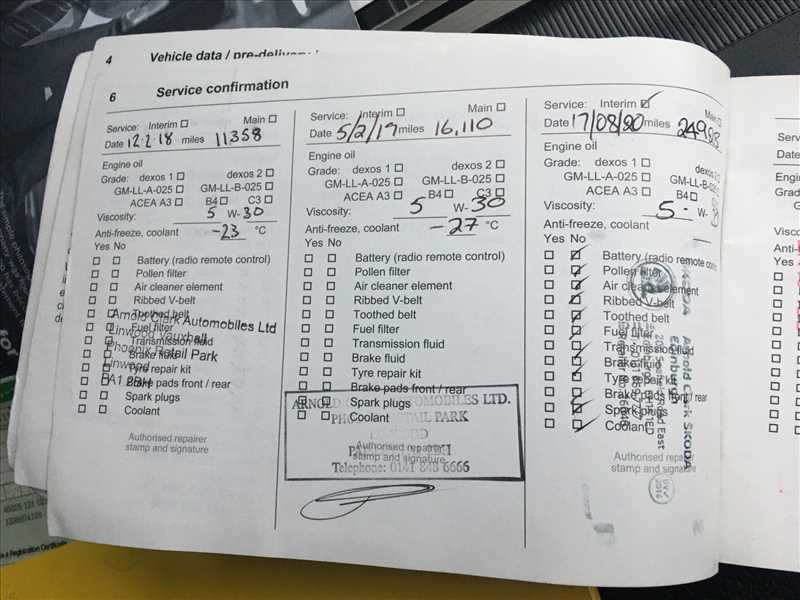 4 Vehicle data / pre-delivery
6 Service confirmation
Service: Interim ☐ Main ☐
Date 12.2.18 miles 11358
Engine oil
Grade: dexos 1 ☐ dexos 2 ☐
GM-LL-A-025 ☐ GM-LL-B-025 ☐
ACEA A3 ☐ B4 ☐ C3 ☐
Viscosity: 5 W-30
Anti-freeze, coolant -23 °C
Yes No
☐ ☐ Battery (radio remote control)
☐ ☐ Pollen filter
☐ ☐ Air cleaner element
☐ ☐ Ribbed V-belt
☐ ☐ Toothed belt
☐ ☐ Fuel filter
☐ ☐ Transmission fluid
☐ ☐ Brake fluid
☐ ☐ Tyre repair kit
☐ ☐ Brake pads front / rear
☐ ☐ Spark plugs
☐ ☐ Coolant
Arnold Clark Automobiles Ltd
Linwood Vauxhall
Phoenix Retail Park
Linwood
PA1 2BH
Authorised repairer
stamp and signature
Service: Interim ☐ Main ☐
Date 5/2/19 miles 16,110
Engine oil
Grade: dexos 1 ☐ dexos 2 ☐
GM-LL-A-025 ☐ GM-LL-B-025 ☐
ACEA A3 ☐ B4 ☐ C3 ☐
Viscosity: 5 W-30
Anti-freeze, coolant -27 °C
Yes No
☐ ☐ Battery (radio remote control)
☐ ☐ Pollen filter
☐ ☐ Air cleaner element
☐ ☐ Ribbed V-belt
☐ ☐ Toothed belt
☐ ☐ Fuel filter
☐ ☐ Transmission fluid
☐ ☐ Brake fluid
☐ ☐ Tyre repair kit
☐ ☐ Brake pads front / rear
☐ ☐ Spark plugs
☐ ☐ Coolant
ARNOLD AUTOMOBILES LTD.
RETAIL PARK
Telephone: 0141 848 6666
Authorised repairer
stamp and signature
Service: Interim ☑ Main ☐
Date 17/08/20 miles
Engine oil
Grade: dexos 1 ☐ dexos 2
GM-LL-A-025 ☐ GM-LL-B-025
ACEA A3 ☐ B4 ☐
Viscosity: 5 W-
Anti-freeze, coolant
Yes No
☐ ☑ Battery (radio remote
☐ ☑ Pollen filter
☐ ☑ Air cleaner element
☐ ☑ Ribbed V-belt
☐ ☑ Toothed belt
☐ ☑ Fuel filter
☐ ☑ Transmission fluid
☐ ☑ Brake fluid
☐ ☑ Tyre repair kit
☐ ☑ Brake pads front / rear
☐ ☑ Spark plugs
☐ ☑ Coolant
Arnold Clark SKODA
Edinburgh
Authorised repairer
stamp and signature
Servi
Date
Engin
Grade
Visco
Anti-
Yes